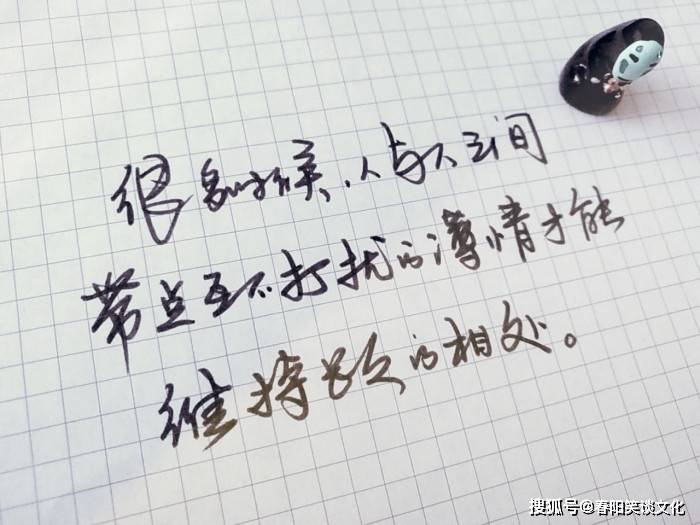 很多时候，人与人之间
带点互不打扰的薄情才能
维持长久的相处。
搜狐号@春阳笑谈文化